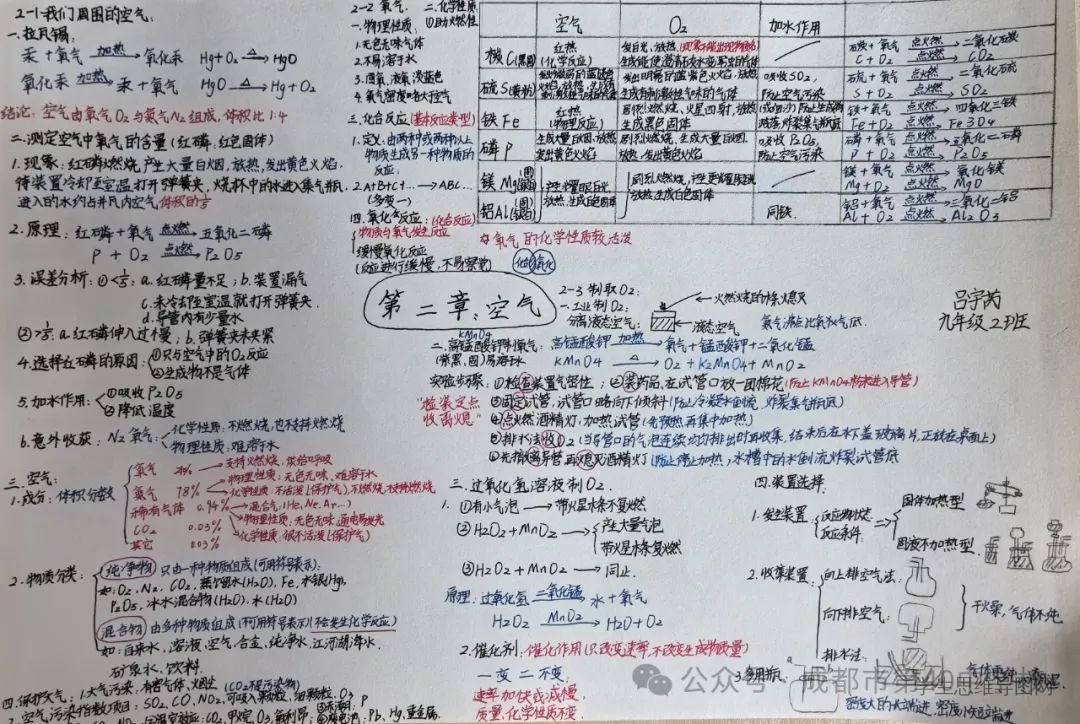 2-1 我们周围的空气.
一.拉瓦锡:
汞 + 氧气 加热 氧化汞 Hg+O₂ △ HgO
氧化汞 加热 汞 + 氧气 HgO △ Hg+O₂
结论: 空气由氧气O₂与氮气N₂组成, 体积比1:4
二.测定空气中氧气的含量 (红磷: 红色固体)
1.现象: 红磷燃烧, 产生大量白烟, 放热, 发出黄色火焰,
待装置冷却至室温打开弹簧夹, 烧杯中的水进入集气瓶,
进入的水约占井瓦内空气体积的⅕
2.原理: 红磷 + 氧气 点燃 五氧化二磷
P + O₂ 点燃 P₂O₅
3.误差分析: ①<⅕: a.红磷量不足; b.装置漏气
c.未冷却至室温就打开弹簧夹.
d.导管内有少量水
②>⅕: a.红磷伸入过慢; b.弹簧夹未夹紧
4.选择红磷的原因: ①只与空气中的O₂反应
②生成物不是气体
5.加水作用: ①吸收P₂O₅
②降低温度
6.意外收获: N₂氮气: 化学性质: 不燃烧, 也不支持燃烧
物理性质: 难溶于水
三.空气:
1.成分: 体积分数
氧气 21% 支持燃烧, 供给呼吸
物理性质: 无色无味, 难溶于水
氮气 78% 化学性质: 不活泼(保护气) 不燃烧, 不支持燃烧
稀有气体 0.94% 混合气(He、Ne、Ar...)
物理性质, 无色无味, 通电易发光
CO₂ 0.03% 化学性质, 很不活泼(保护气)
其它 0.03%
2.物质分类:
纯净物 只由一种物质组成(可用符号表示).
如: O₂、N₂、CO₂、蒸馏水(H₂O)、Fe、水银Hg、
P₂O₅、冰水混合物(H₂O)、水(H₂O)
混合物 由多种物质组成(不可用符号表示)(不会发生化学反应)
如: 自来水、溶液、空气、合金、纯净水、江河湖海水、
矿泉水、饮料.
四.保护大气: 1.大气污染: 有害气体、烟尘 (CO₂不是污染物)
2.空气污染指数项目: SO₂、CO、NO₂、可吸入颗粒、细颗粒、O₃
CO₂、甲烷、O₃、氟利昂 Pb、Hg、重金属.
2-2 氧气.
一.物理性质:
1.无色无味气体
2.不易溶于水
3.固氧、液氧: 淡蓝色
4.氧气密度略大于空气
二.化学性质:
①助燃性
三.化合反应(基本反应类型)
1.定义: 由两种或两种以上
物质生成另一种物质的
反应
2.A+B+C+... → ABC...
(多变一)
四.氧化反应: (化合反应)
物质与氧气发生反应
缓慢氧化反应
(反应进行缓慢, 不易察觉)
化合 氧化
空气 O₂ 加水作用
木炭C(黑固) 红热 (化学反应) 发白光, 放热
碳 + 氧气 点燃 二氧化碳
C + O₂ 点燃 CO₂
吸收SO₂, 防止空气污染
硫 + 氧气 点燃 二氧化硫
S + O₂ 点燃 SO₂
铁Fe 红热 剧烈燃烧, 火星四射, 放热
生成黑色固体
铁 + 氧气 点燃 四氧化三铁
Fe + O₂ 点燃 Fe3O4
磷P 生成大量白烟, 放热, 发出黄色火焰 剧烈燃烧, 生成大量白烟, 放热, 发出黄色火焰
吸收P₂O₅, 防止空气污染
磷 + 氧气 点燃 五氧化二磷
P + O₂ 点燃 P₂O₅
镁Mg 产生耀眼白光 放热, 生成白色固体 放热, 生成白色固体
镁 + 氧气 点燃 氧化镁
Mg + O₂ 点燃 MgO
铝Al 同铁.
Al + O₂ 点燃 Al₂O₃
氧气的化学性质较活泼
第二章: 空气
吕宇菡
九年级2班
2-3 制取O₂:
一.工业制O₂:
分离液态空气: 液态空气 氧气沸点比氮气低.
二.高锰酸钾制氧气: 高锰酸钾 加热 氧气 + 锰酸钾 + 二氧化锰
KMnO4
(紫黑、固)易溶于水 KMnO4 △ O₂ + K₂MnO4 + MnO₂
实验步骤: ①检查装置气密性; ②装药品, 在试管口放一团棉花(防止KMnO4粉末进入导管)
“检装定点
收离熄”
③固定试管, 试管口略向下倾斜(防止冷凝水倒流, 炸裂集气瓶底)
④点燃酒精灯, 加热试管(先预热再集中加热)
⑤排水法收O₂(当导管口的气泡连续均匀排出时再收集, 结束后在水下盖玻璃片, 正放在桌面上)
⑥先撤离导管再熄灭酒精灯(防止停止加热, 水槽中的水倒流炸裂试管底
三.过氧化氢溶液制O₂.
1.①有小气泡 → 带火星木条不复燃
②H₂O₂+MnO₂ → 产生大量气泡
带火星木条复燃
③H₂O₂+MnO₂ → 同上.
原理: 过氧化氢 二氧化锰 水 + 氧气
H₂O₂ MnO₂ H₂O + O₂
2.催化剂: 催化作用(只改变速率, 不改变生成物质量)
一变二不变.
速率加快或减慢.
质量、化学性质不变.
四.装置选择.
1.发生装置 反应物状态
反应条件.
固体加热型
固液不加热型.
2.收集装置: 向上排空气法:
向下排空气: 干燥, 气体不纯
排水法:
3.多用瓶
公众号 · 成都市第40中
学生思维导图网